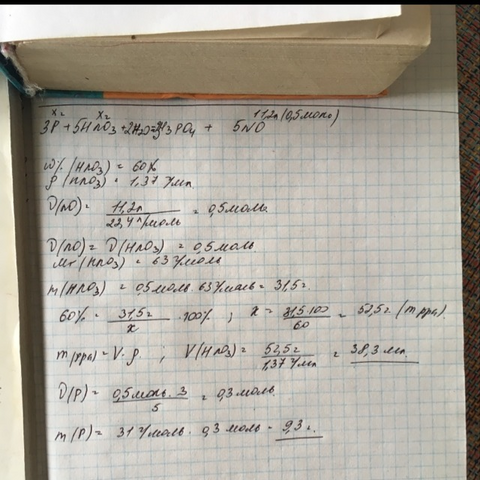 x₁ x₂ 11,2л (0,5моль)
3P + 5HNO3 + 2H2O = 3H3PO4 + 5NO
ω% (HNO3) = 60%
ρ (HNO3) = 1,37 г/мл
ν(NO) = 11,2л / 22,4 л/моль = 0,5моль.
ν(NO) = ν(HNO3) = 0,5моль.
Mr (HNO3) = 63 г/моль
m(HNO3) = 0,5моль · 63 г/моль = 31,5г
60% = 31,5г / x · 100% ; x = 31,5·100 / 60 = 52,5г (m ppa).
m(ppa) = V·ρ ; V(HNO3) = 52,5г / 1,37 г/мл = 38,3 мл
ν(P) = 0,5моль · 3 / 5 = 0,3 моль.
m(P) = 31 г/моль · 0,3 моль = 9,3 г.